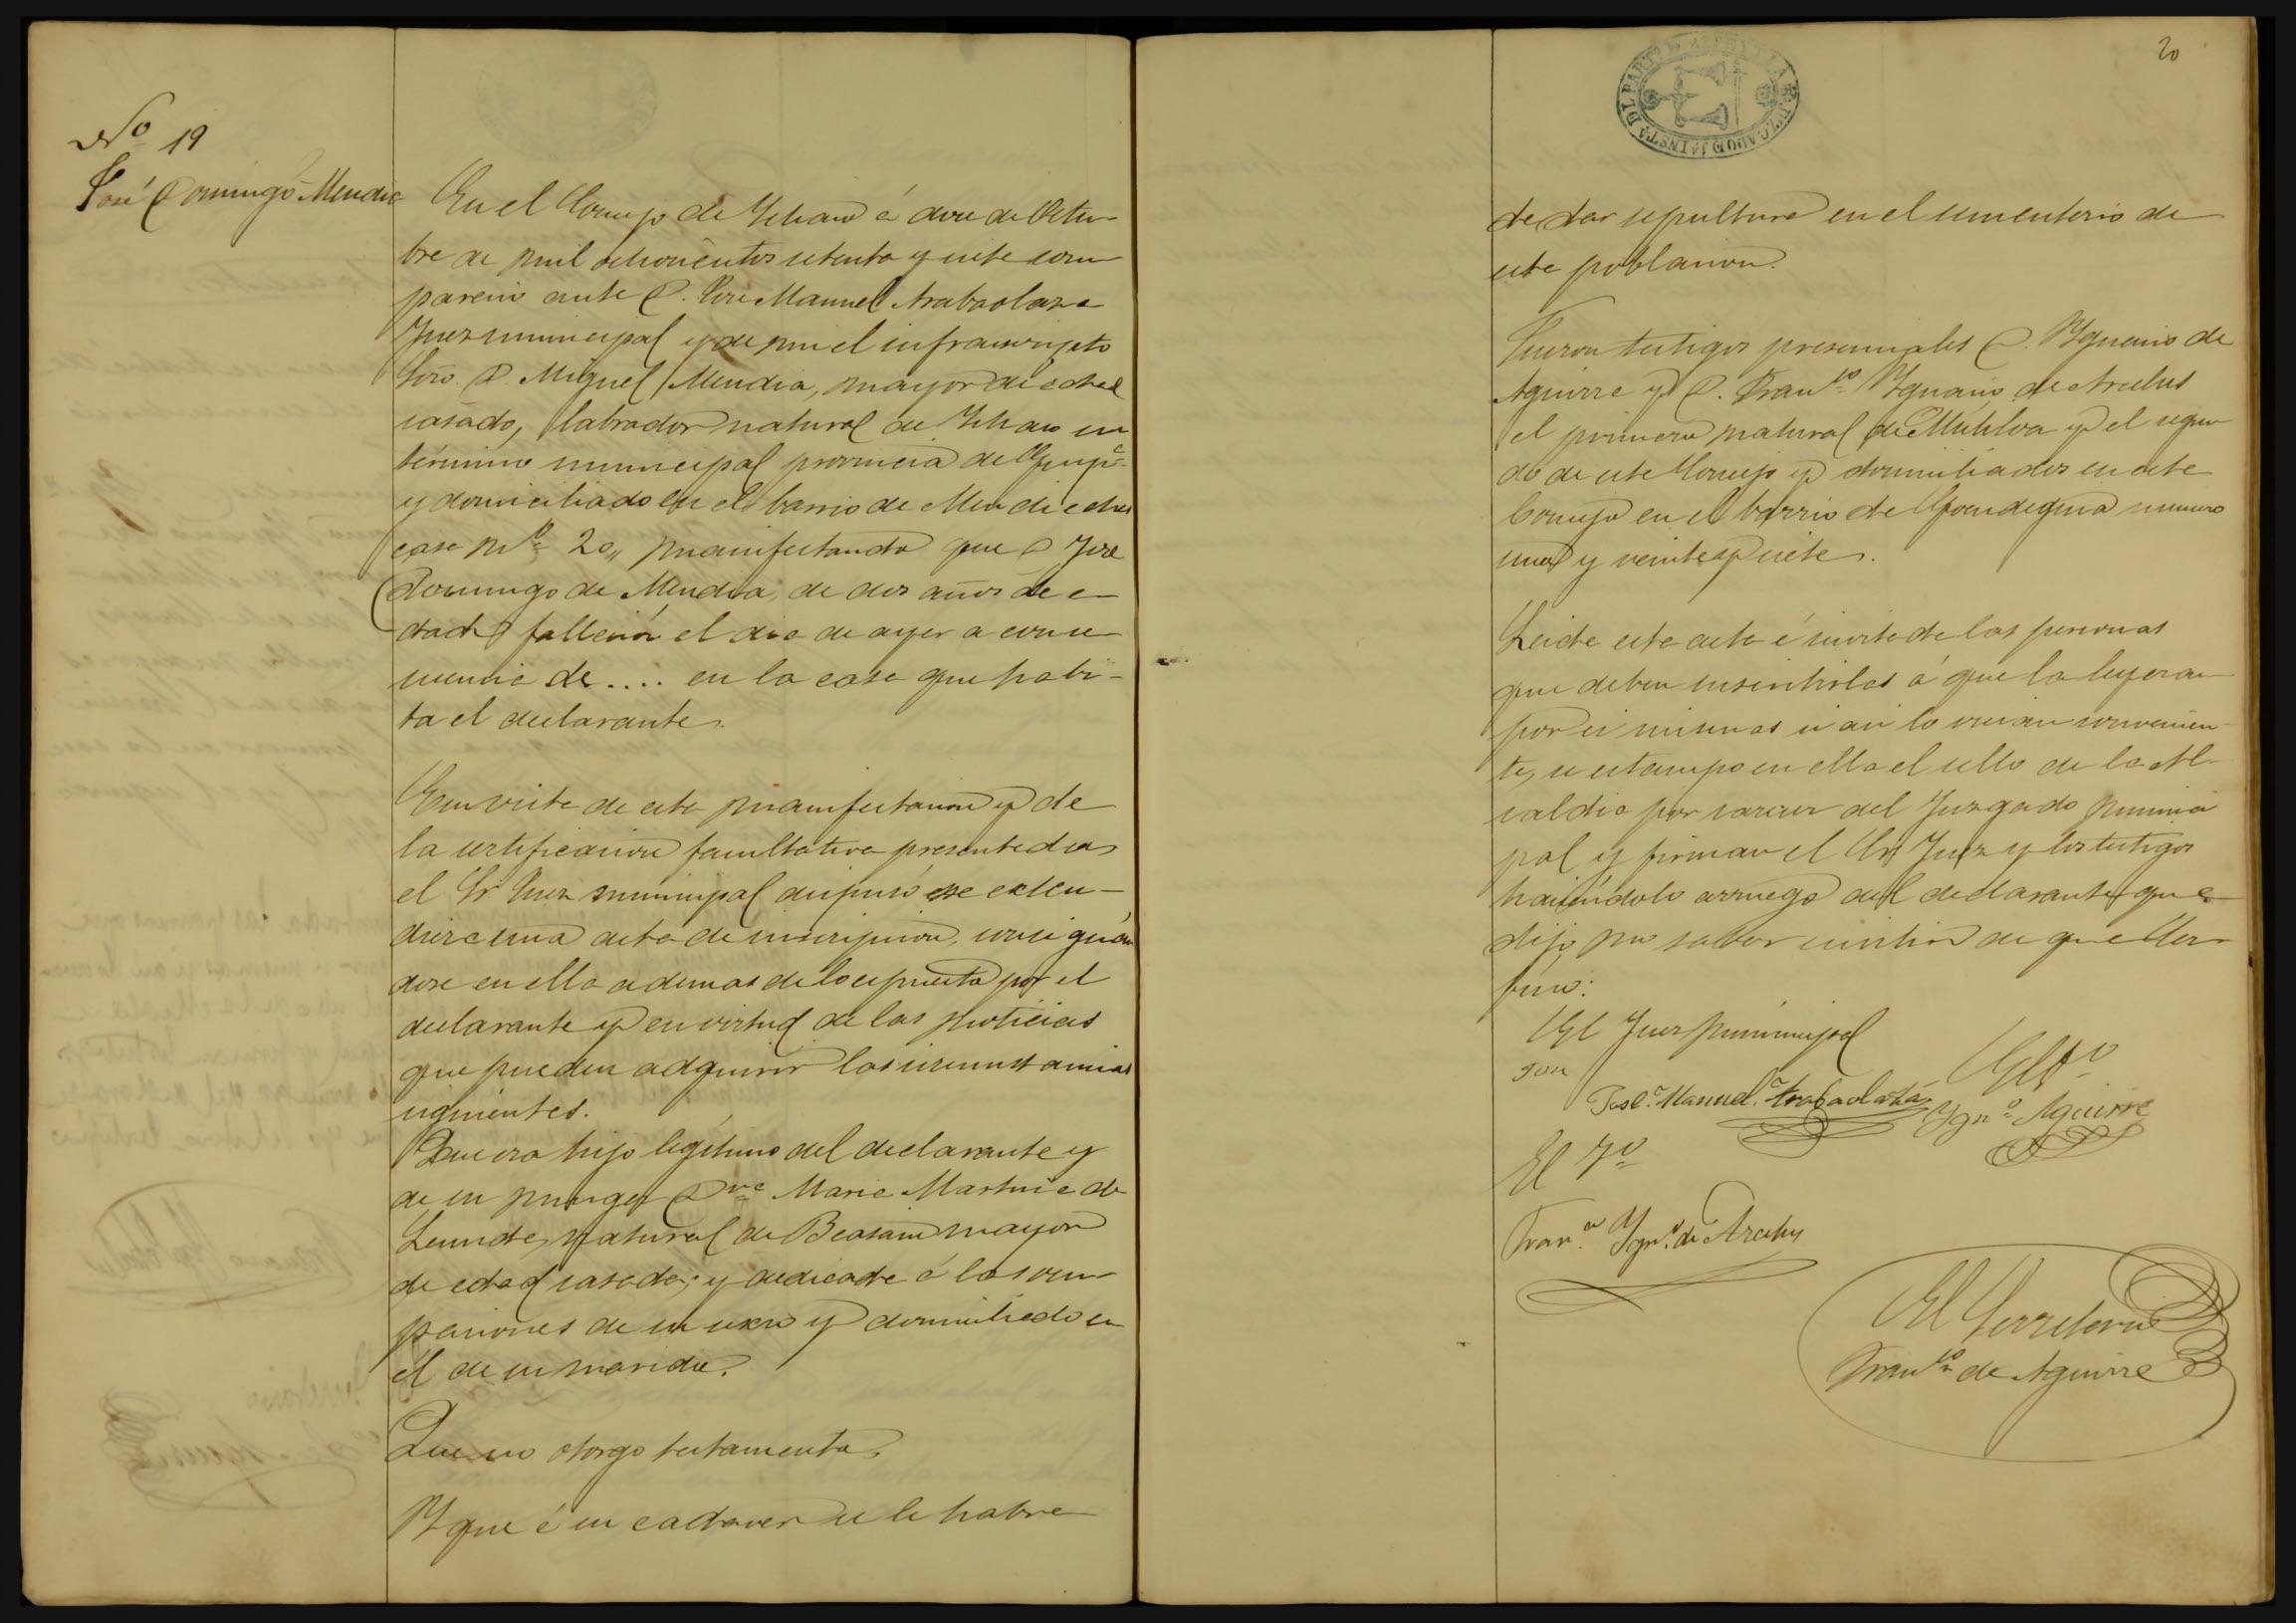 Nº 19
José Domingo Mendia
En el Concejo de Ichaso á doce de Octu-
bre de mil ochocientos setenta y siete com-
parecio ante D. José Manuel Arabaolaza
Juez municipal y de mi el infrascripto
Srio D. Miguel Mendia, mayor de edad
casado, labrador natural de Ichaso en
término municipal provincia de Guipª
y domiciliado en el barrio de
casa nº 20,, manifestando que D José
Domingo de Mendia, de dos años de e-
dad falleció el dia de ayer a conse-
cuencia de .... en la casa que habi-
ta el declarante.
En vista de esta manifestacion y de
la certificacion facultativa presentada
el Sr Juez municipal dispuso se exten-
diera una acta de inscripcion, consignán
dose en ella ademas de lo expuesto por el
declarante y en virtud de las noticias
que pueden adquirir las circunstancias
siguientes.
Que era hijo legítimo del declarante y
de su muger Dña Maria Martina de
natural de Beasain mayor
de edad casada; y dedicada á las ocu-
paciones de su sexo y domiciliado en
él de su marido.
Que no otorgo testamento
Y que á su cadaver se le habra
20
JUZGADO DE 1ª INSTª DEL PARTº DE AZPEITIA
de dar sepultura en el cementerio de
esta poblacion.
Fueron testigos presenciales D. Ygnacio de
Aguirre y D. Franco Ygnacio de
el primero natural de Mutiloa y el segun
do de este Concejo y domiciliados en este
Concejo en el barrio de numero
uno y veinte y siete.
Leida esta acta é invitada las personas
que deben suscribirlas á que la leyeran
por si mismas si asi lo creian convenien-
te, se estampo en ella el sello de la Al-
caldia por carecer del Juzgado munici
pal y firman el Sr Juez y los testigos
haciéndolo arruego del declarante que
dijo no saber escribir de que Cer-
tifico:
El Juez municipal
José Manuel Arabaolaza
El Tº
Ygnº Aguirre
El Tº
Franco Ygnº de
El Secretario
Franco de Aguirre